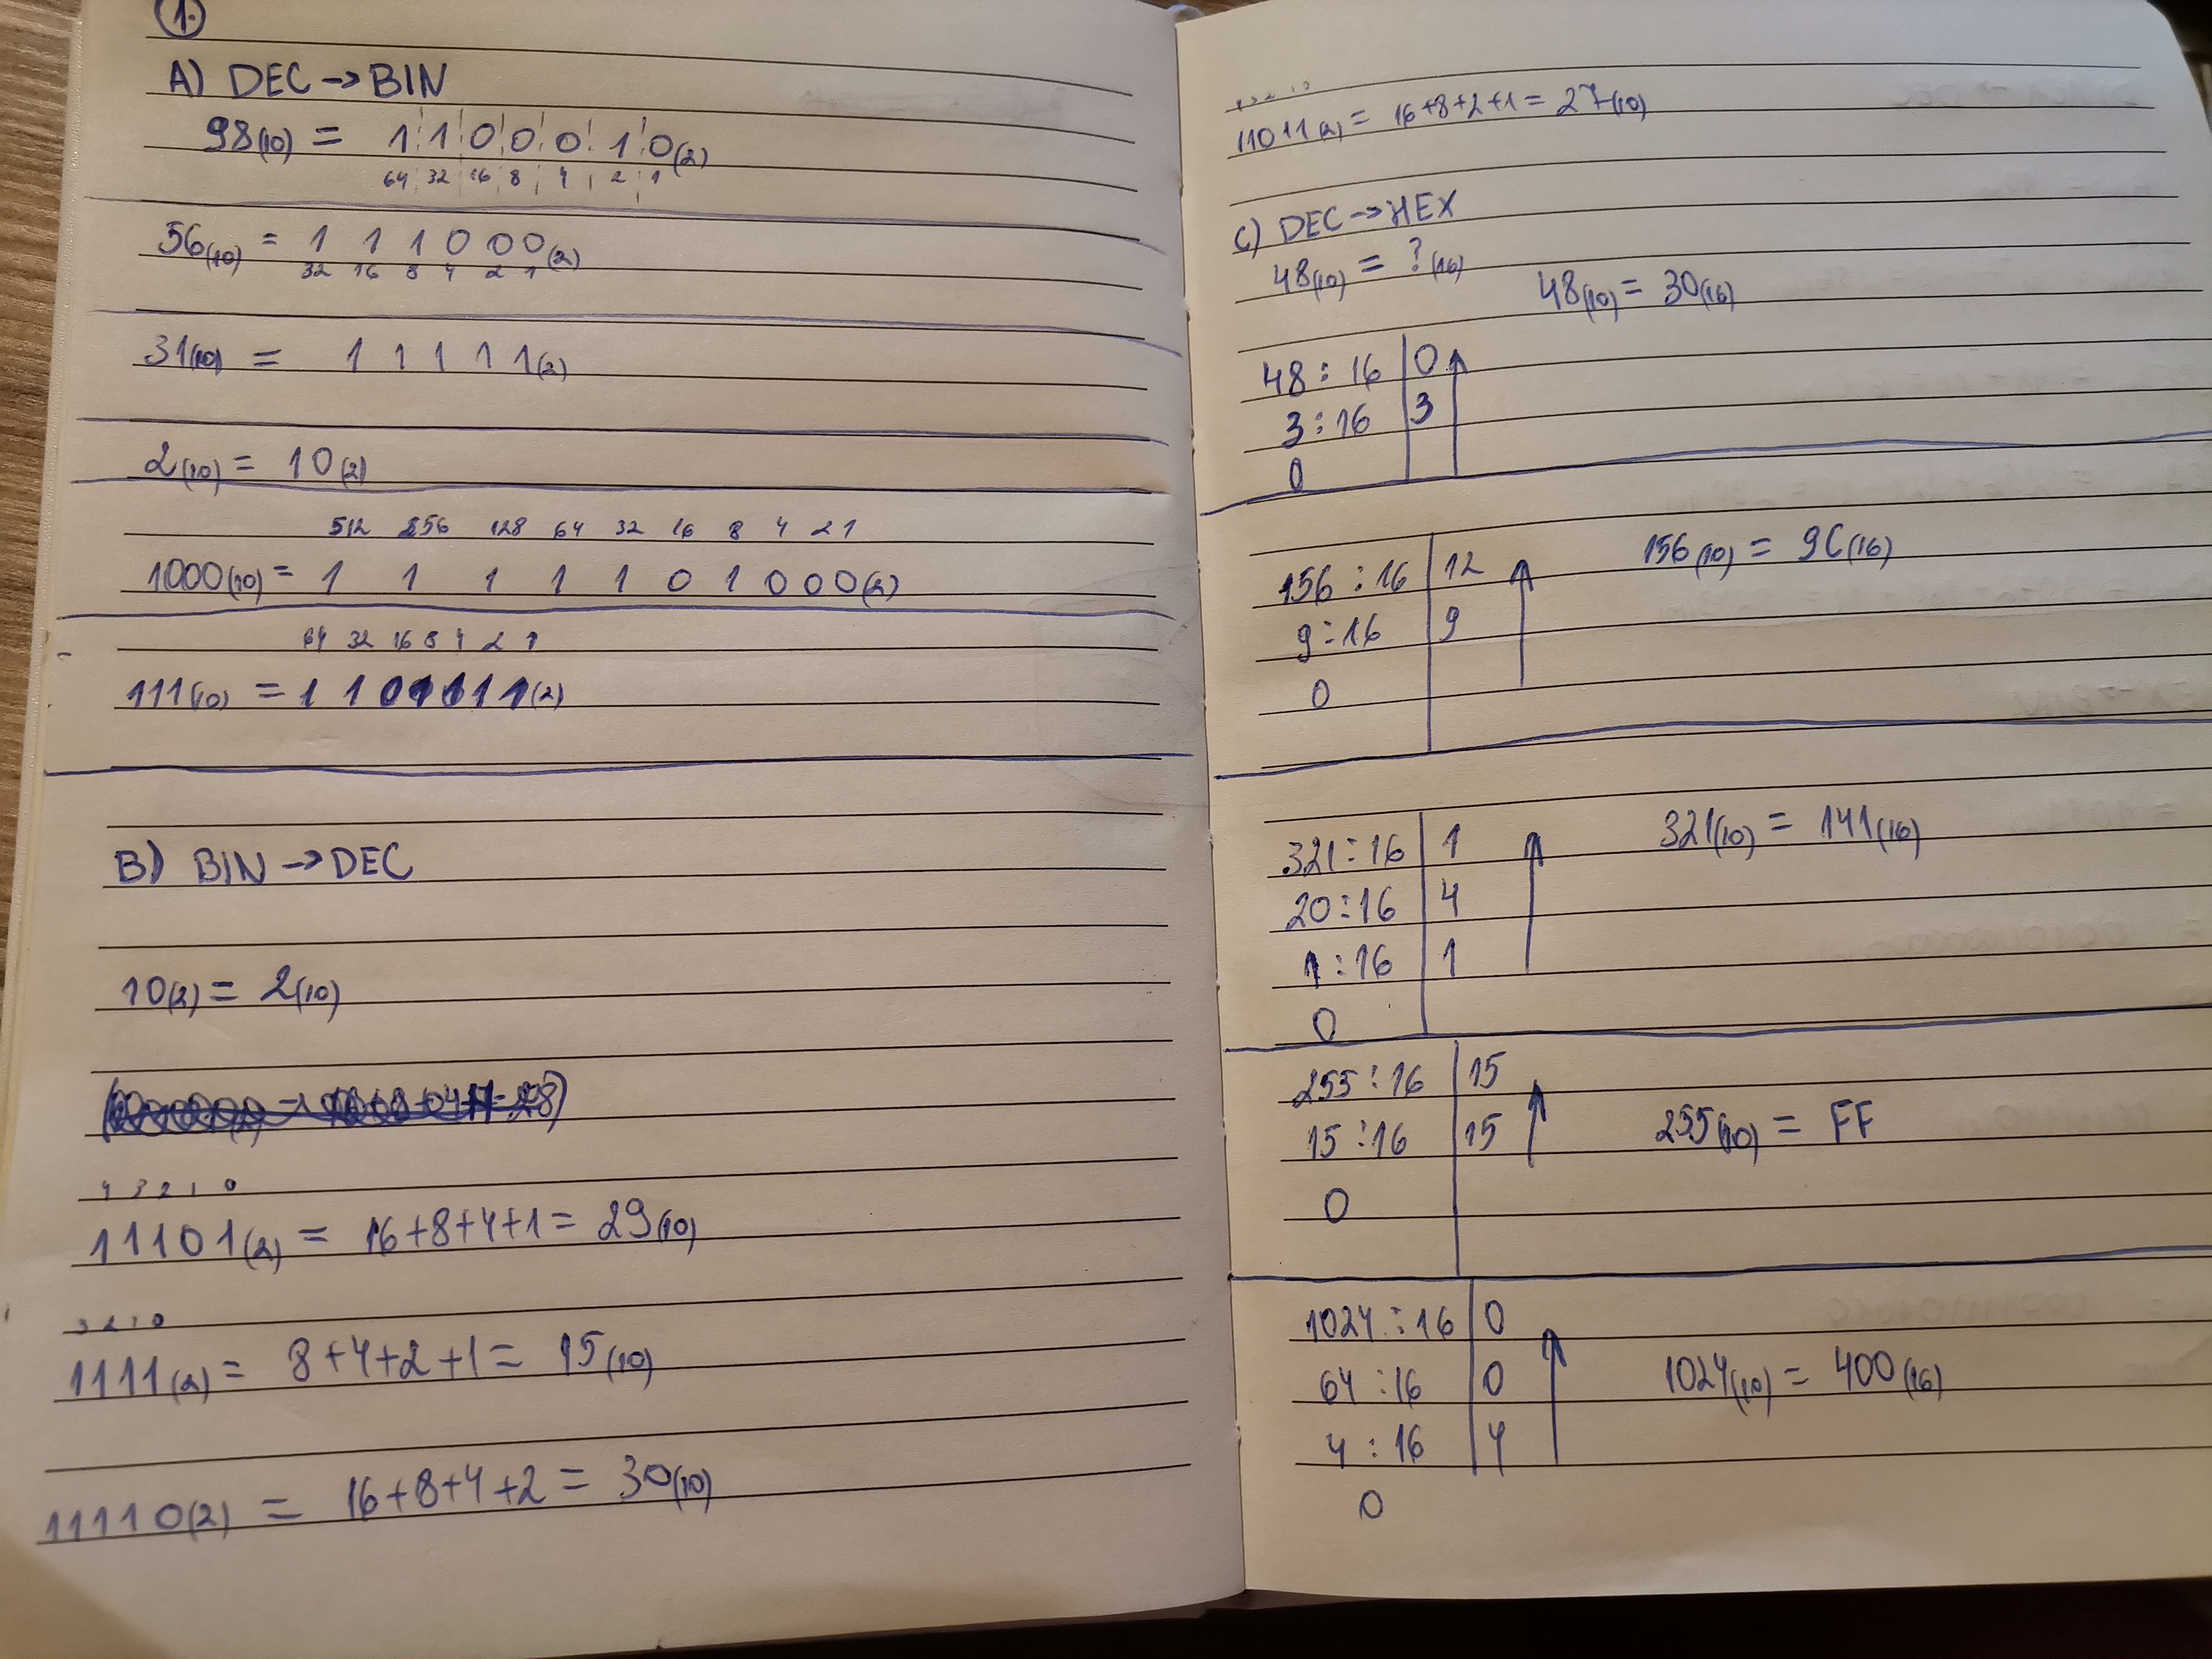 1.
A) DEC → BIN
98(10) = 1 1 0 0 0 1 0(2)
64 32 16 8 4 2 1
56(10) = 1 1 1 0 0 0(2)
32 16 8 4 2 1
31(10) = 1 1 1 1 1(2)
2(10) = 10(2)
512 256 128 64 32 16 8 4 2 1
1000(10) = 1 1 1 1 1 0 1 0 0 0(2)
64 32 16 8 4 2 1
111(10) = 1 1 0 1 1 1 1(2)
B) BIN → DEC
10(2) = 2(10)
4 3 2 1 0
11101(2) = 16+8+4+1 = 29(10)
3 2 1 0
1111(2) = 8+4+2+1 = 15(10)
11110(2) = 16+8+4+2 = 30(10)
11011(2) = 16+8+2+1 = 27(10)
C) DEC → HEX
48(10) = ?(16)
48(10) = 30(16)
48 : 16 | 0
3 : 16 | 3
0
156 : 16 | 12
156(10) = 9C(16)
9 : 16 | 9
0
321 : 16 | 1
321(10) = 141(16)
20 : 16 | 4
1 : 16 | 1
0
255 : 16 | 15
15 : 16 | 15
255(10) = FF
0
1024 : 16 | 0
64 : 16 | 0
1024(10) = 400(16)
4 : 16 | 4
0